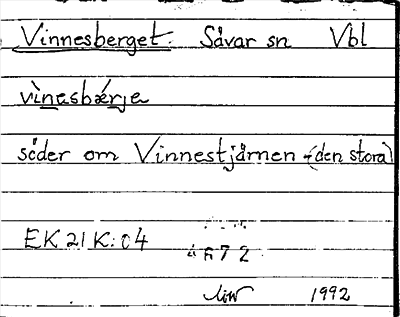 Vinnesberget. Sävar sn Vbl
vìnəsbǽrjə
söder om Vinnestjärnen (den stora)
EK 21 K:04
4672
1992